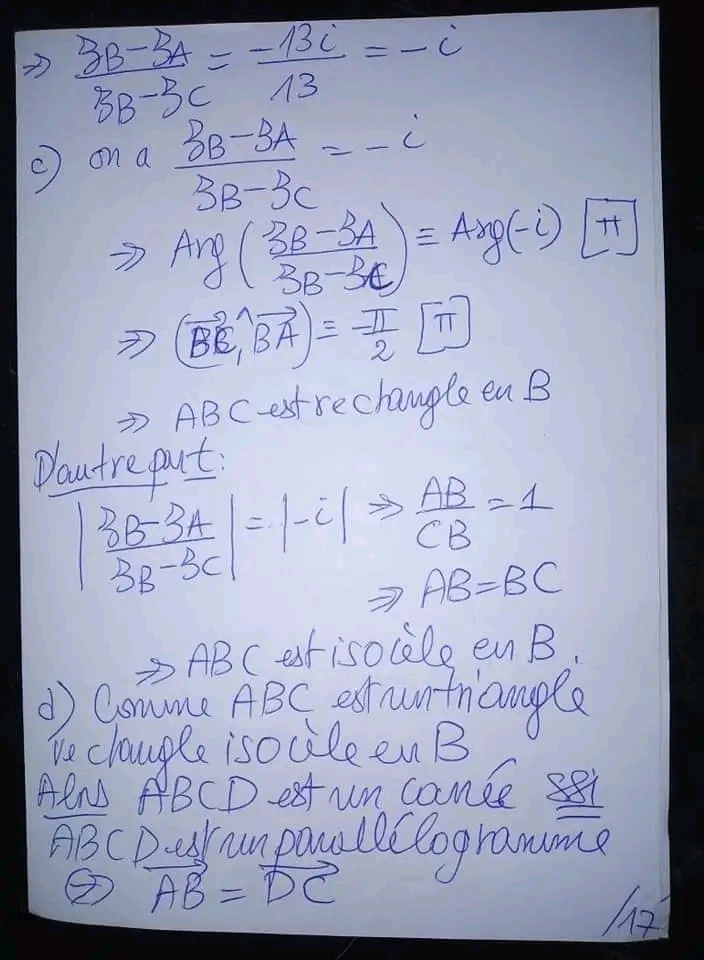 ⇒ (zB − zA)/(zB − zC) = −13i/13 = −i
c) on a (zB − zA)/(zB − zC) = −i
⇒ Arg((zB − zA)/(zB − zC)) ≡ Arg(−i) [π]
⇒ (BC, BA) ≡ −π/2 [π]
⇒ ABC est rectangle en B
D'autre part :
|(zB − zA)/(zB − zC)| = |−i| ⇒ AB/CB = 1
⇒ AB = BC
⇒ ABC est isocèle en B.
d) Comme ABC est un triangle
rectangle isocèle en B
Alors ABCD est un carrée ssi
ABCD est un parallélogramme
⇔ AB = DC
/17